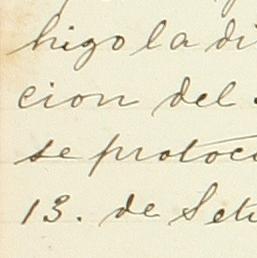 higo la di
cion del
se protoco
13. de Setu